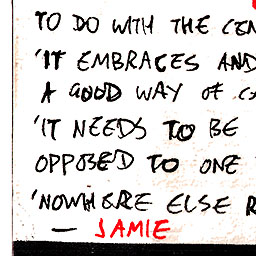 TO DO WITH THE CEN
'IT EMBRACES AND
A GOOD WAY OF
'IT NEEDS TO BE
OPPOSED TO ONE
'NOWHERE ELSE R
— JAMIE